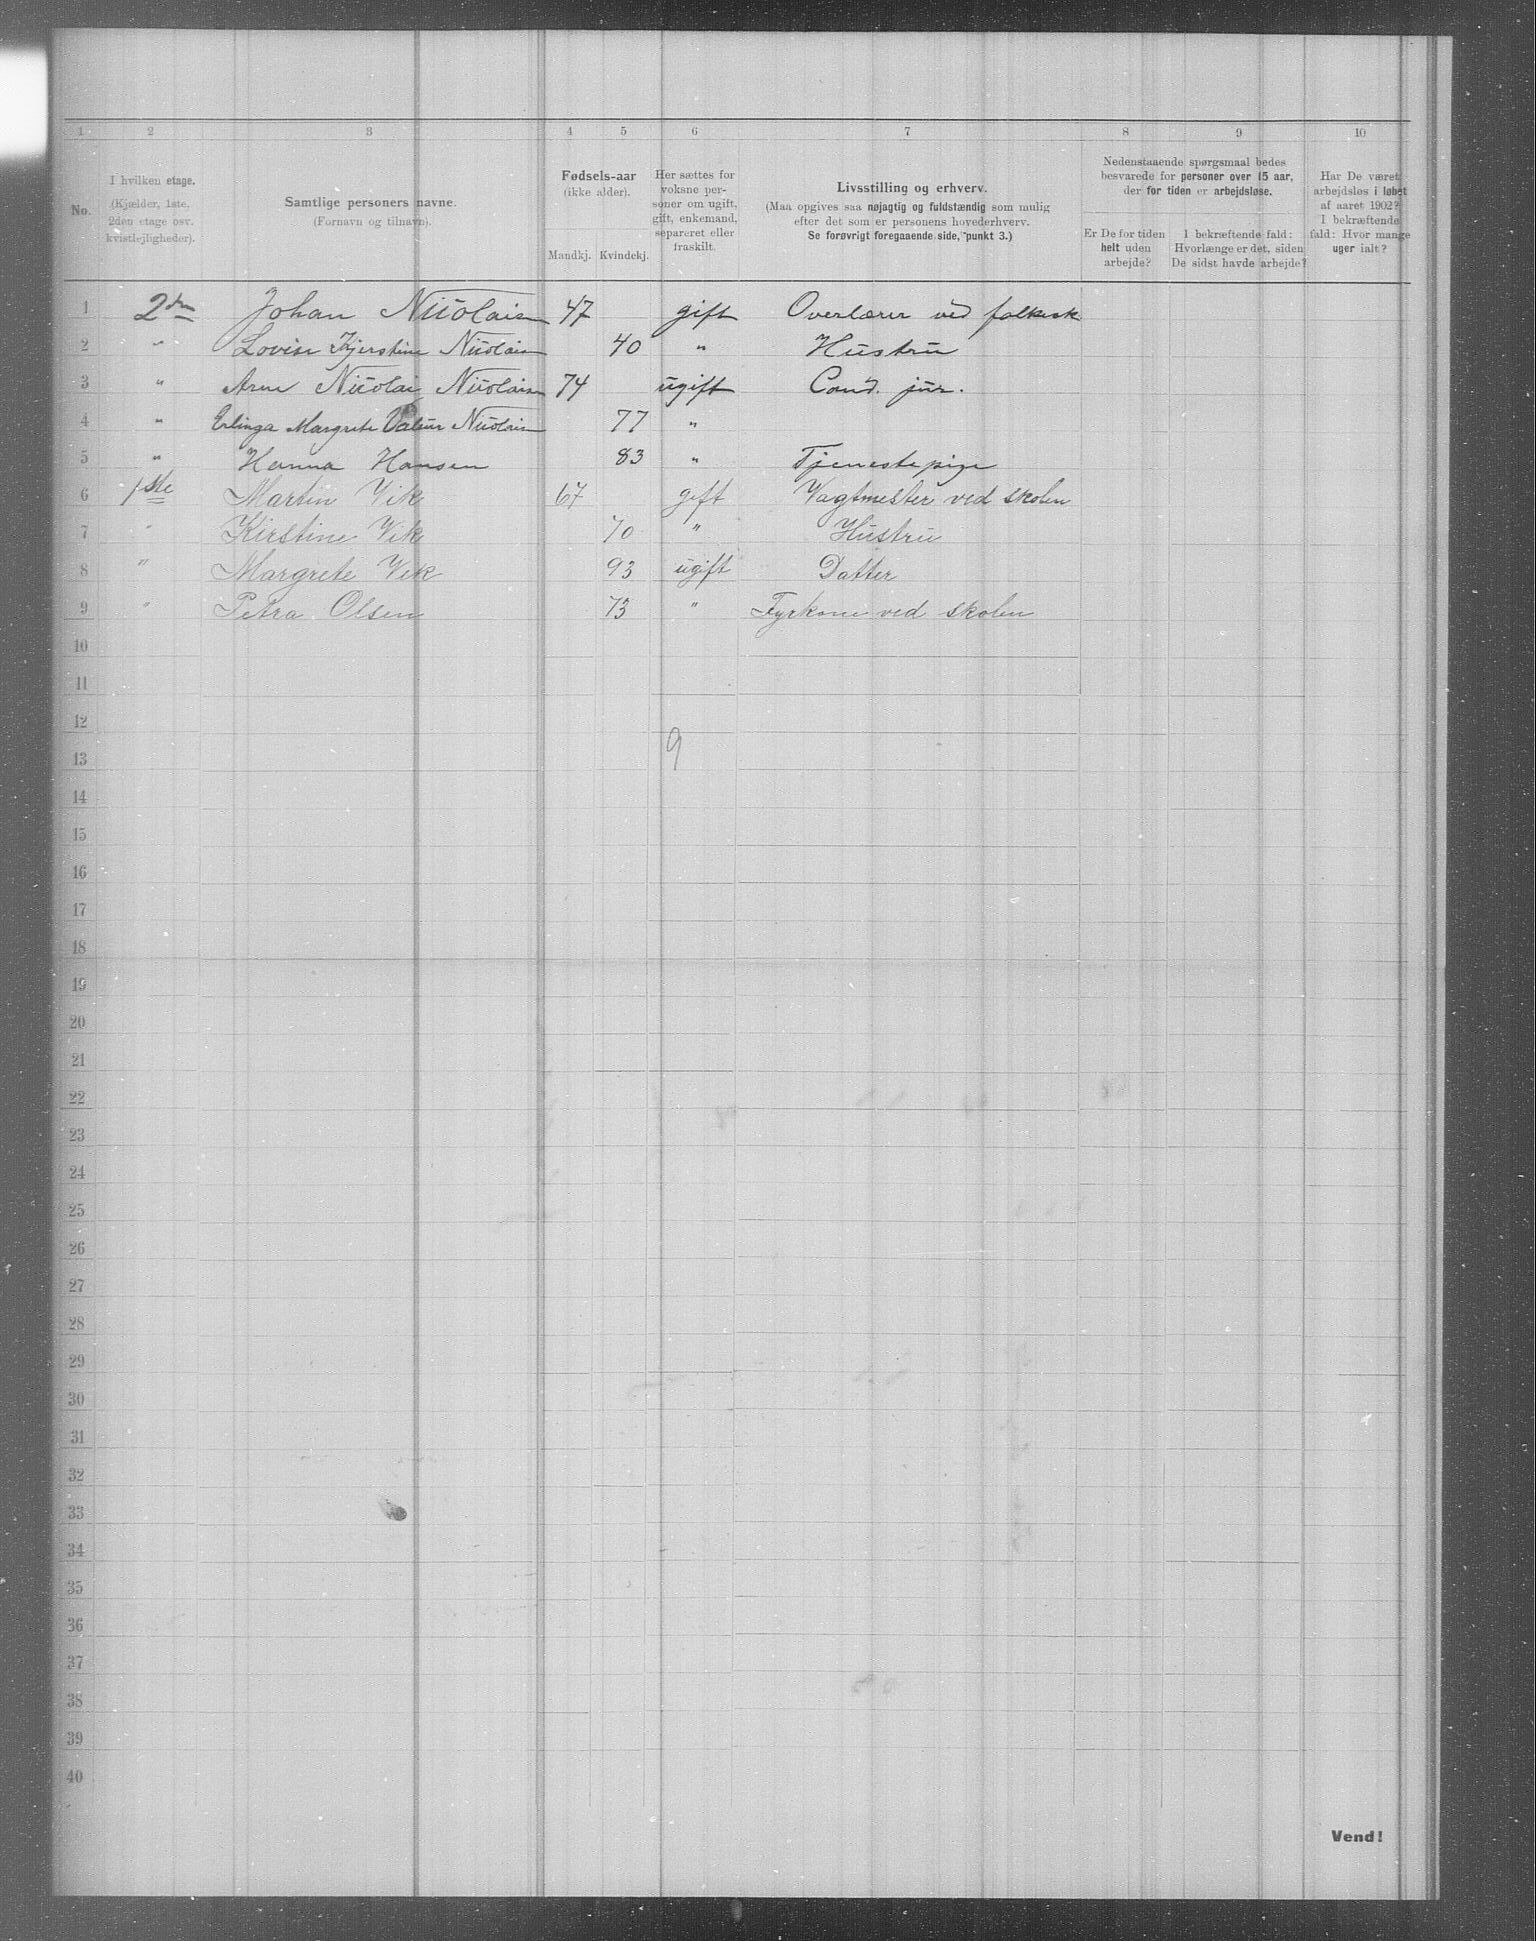 1 2 3 4 5 6 7 8 9 10
No.
I hvilken etage.
(Kjælder, 1ste,
2den etage osv.
kvistlejligheder).
Samtlige personers navne.
(Fornavn og tilnavn).
Fødsels-aar
(ikke alder).
Mandkj. Kvindekj.
Her sættes for
voksne per-
soner om ugift,
gift, enkemand,
separeret eller
fraskilt.
Livsstilling og erhverv.
(Maa opgives saa nøjagtig og fuldstændig som mulig
efter det som er personens hovederhverv.
Se forøvrigt foregaaende side, punkt 3.)
Nedenstaaende spørgsmaal bedes
besvarede for personer over 15 aar,
der for tiden er arbejdsløse.
Er De for tiden
helt uden
arbejde?
I bekræftende fald:
Hvorlænge er det, siden
De sidst havde arbejde?
Har De været
arbejdsløs i løbet
af aaret 1902?
I bekræftende
fald: Hvor mange
uger ialt?
1 2den Johan Nicolaisen 47 gift Overlærer ved folkesk
2 " Lovise Kjerstine Nicolaisen 40 " Hustru
3 " Arne Nicolai Nicolaisen 74 ugift Cand. jur.
4 " Erlinga Margrete Nicolaisen 77 "
5 " Hanna Hansen 83 " Tjenestepige
6 1ste Martin Vik 67 gift Vagtmester ved skolen
7 " Kirstine Vik 70 " Hustru
8 " Margrete Vik 93 ugift Datter
9 " Petra Olsen 73 " Fyrkone ved skolen
10
11
12
9
13
14
15
16
17
18
19
20
21
22
23
24
25
26
27
28
29
30
31
32
33
34
35
36
37
38
39
40
Vend!